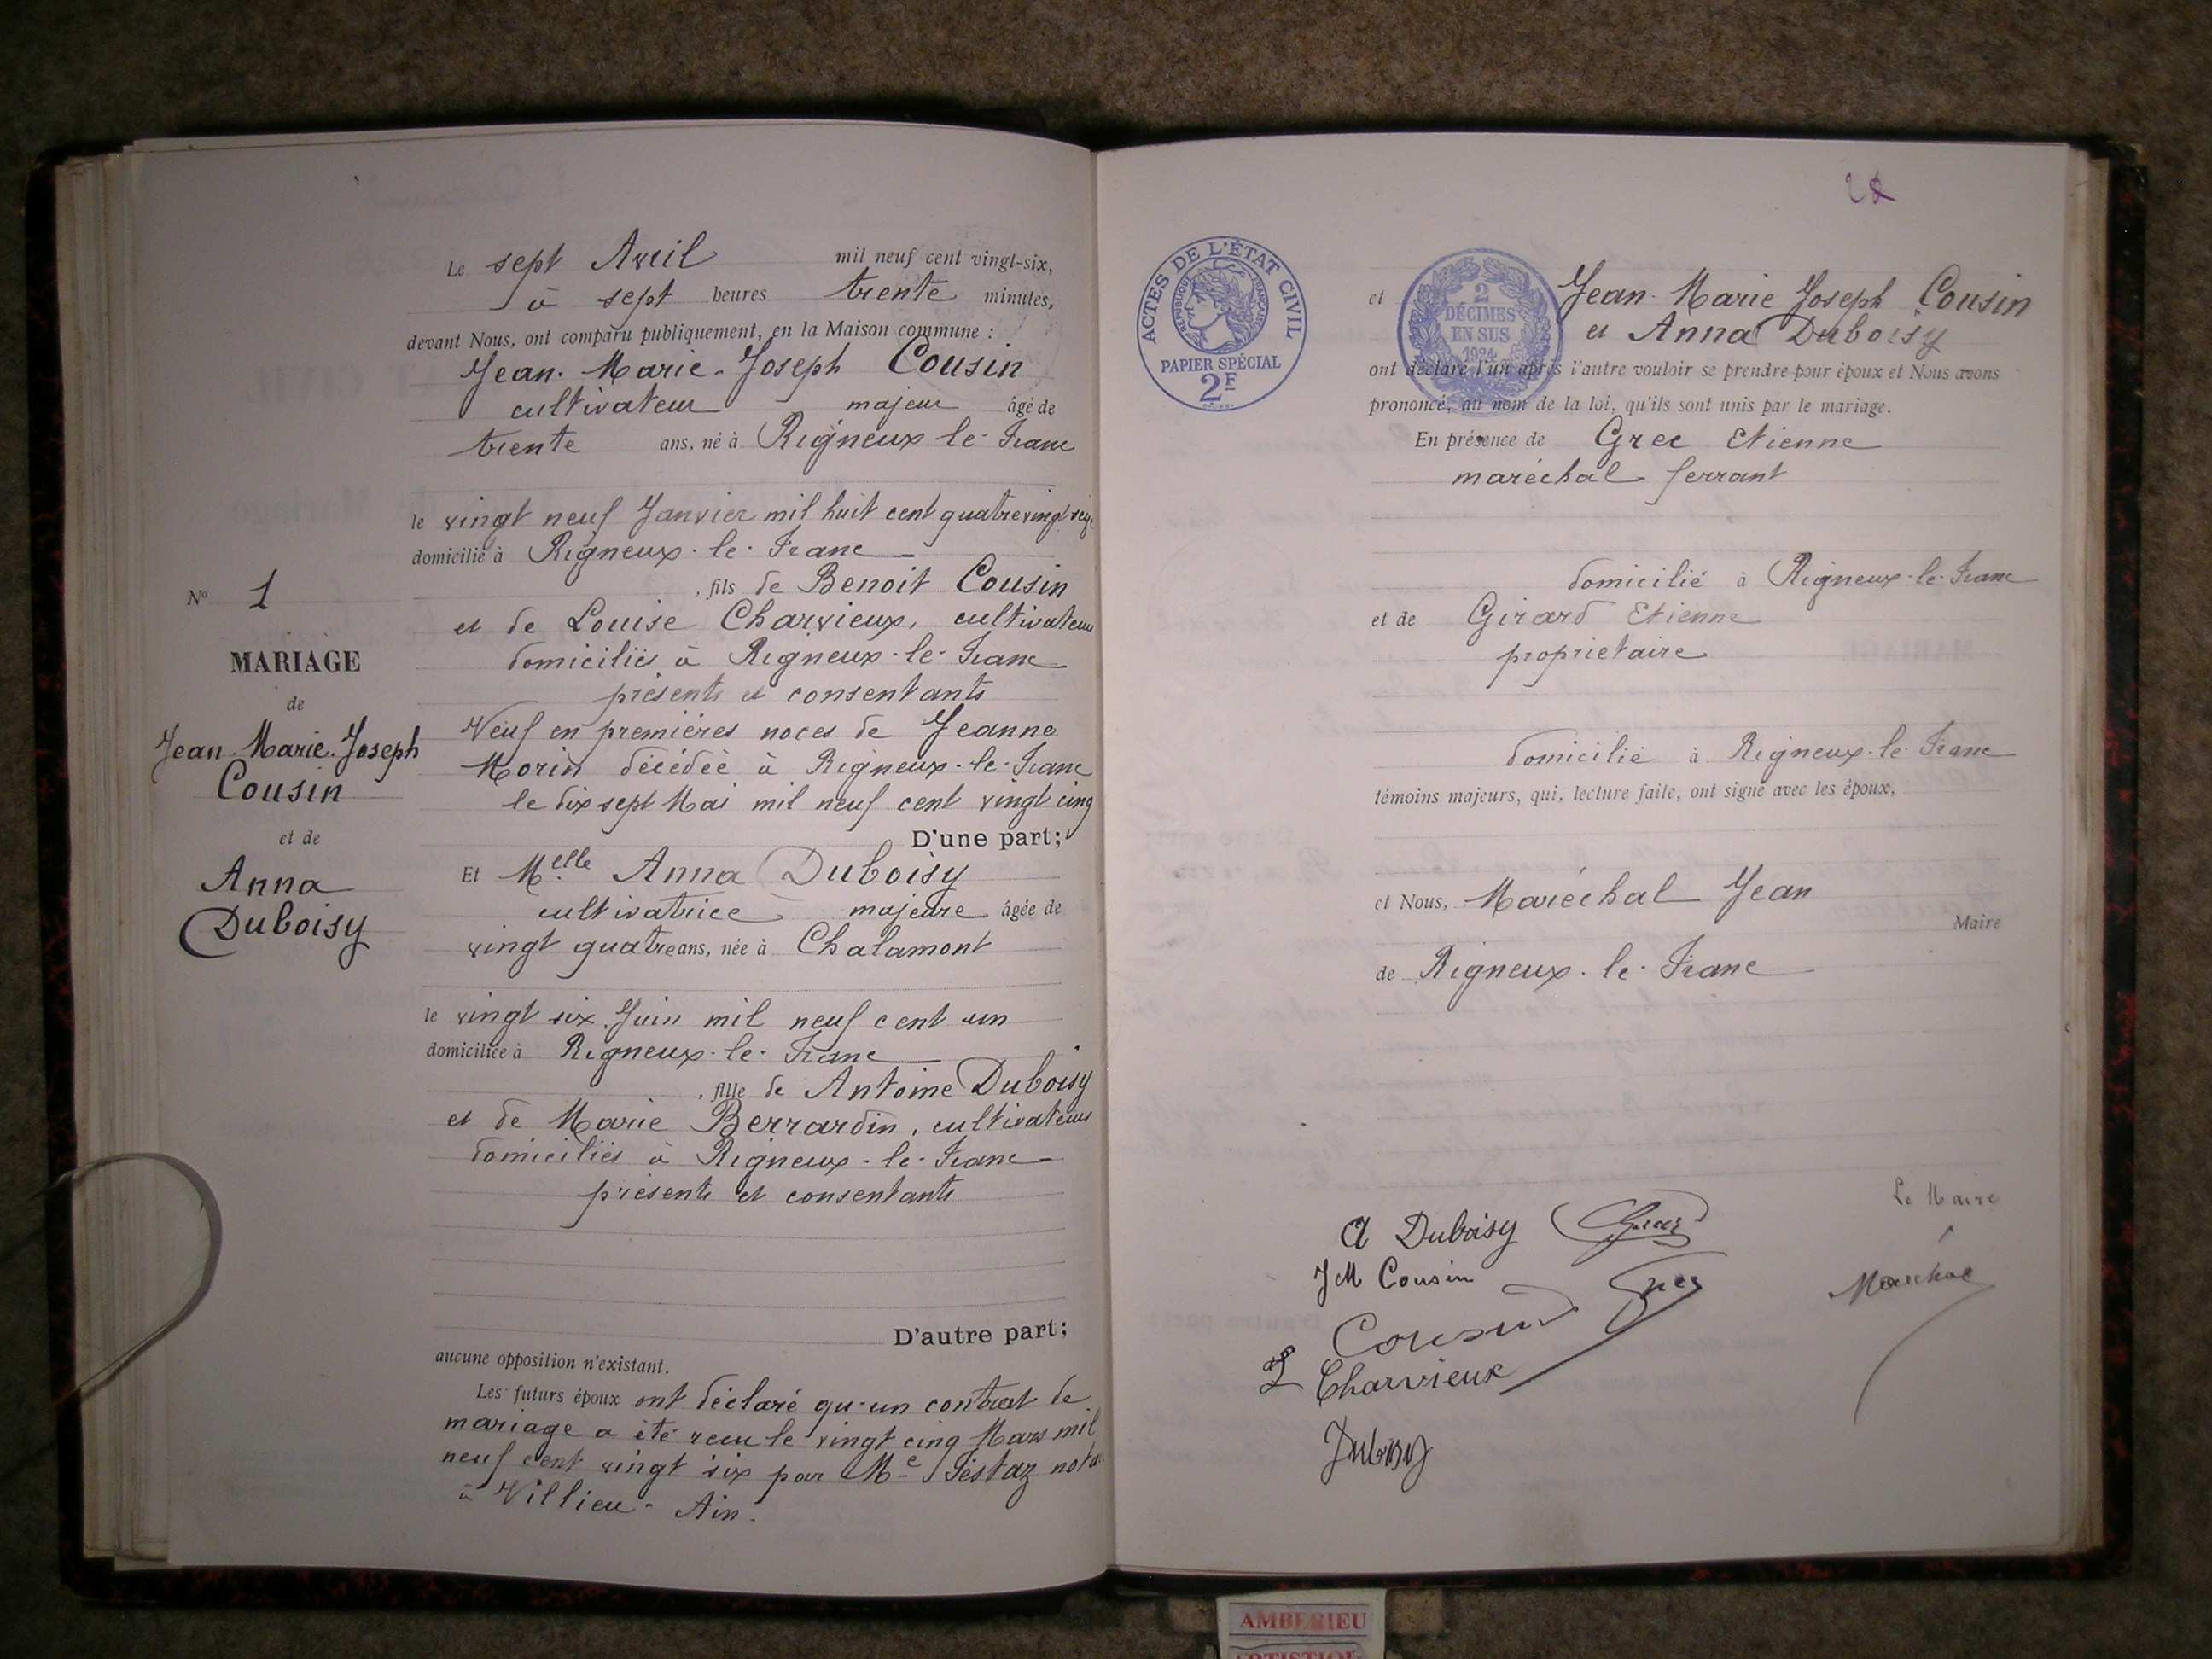 Le sept Avril mil neuf cent vingt-six,
à sept heures trente minutes,
devant Nous, ont comparu publiquement, en la Maison commune :
Jean-Marie-Joseph Cousin
cultivateur majeur âgé de
trente ans, né à Rigneux-le-Franc
le vingt neuf Janvier mil huit cent quatrevingt seize
domicilié à Rigneux-le-Franc
, fils de Benoit Cousin
et de Louise Charvieux, cultivateurs
domiciliés à Rigneux-le-Franc
présents et consentants
Veuf en premières noces de Jeanne
Morin décédée à Rigneux-le-Franc
le dix sept Mai mil neuf cent vingt cinq
D'une part;
Et Melle Anna Duboisy
cultivatrice majeure âgée de
vingt quatre ans, née à Chalamont
le vingt six Juin mil neuf cent un
domiciliée à Rigneux-le-Franc
, fille de Antoine Duboisy
et de Marie Berrardin, cultivateurs
domiciliés à Rigneux-le-Franc
présents et consentants
D'autre part;
aucune opposition n'existant.
Les futurs époux ont déclaré qu'un contrat de
mariage a été recu le vingt cinq Mars mil
neuf cent vingt six par Me Festaz nota
à Villieu-Ain.
N° 1
MARIAGE
de
Jean-Marie-Joseph
Cousin
et de
Anna
Duboisy
ACTES DE L'ÉTAT CIVIL
RÉPUBLIQUE FRANÇAISE
PAPIER SPÉCIAL
2F
2
DÉCIMES
EN SUS
1924
et Jean-Marie Joseph Cousin
et Anna Duboisy
ont déclaré l'un après l'autre vouloir se prendre pour époux et Nous avons
prononcé, au nom de la loi, qu'ils sont unis par le mariage.
En présence de Grec Etienne
maréchal ferrant
domicilié à Rigneux-le-Franc
et de Girard Etienne
proprietaire
domicilié à Rigneux-le-Franc
témoins majeurs, qui, lecture faite, ont signé avec les époux,
et Nous, Maréchal Jean
Maire
de Rigneux-le-Franc
Le Maire
A Duboisy
JM Cousin
Maréchal
Cousin
L Charvieux
Duboisy
AMBERIEU